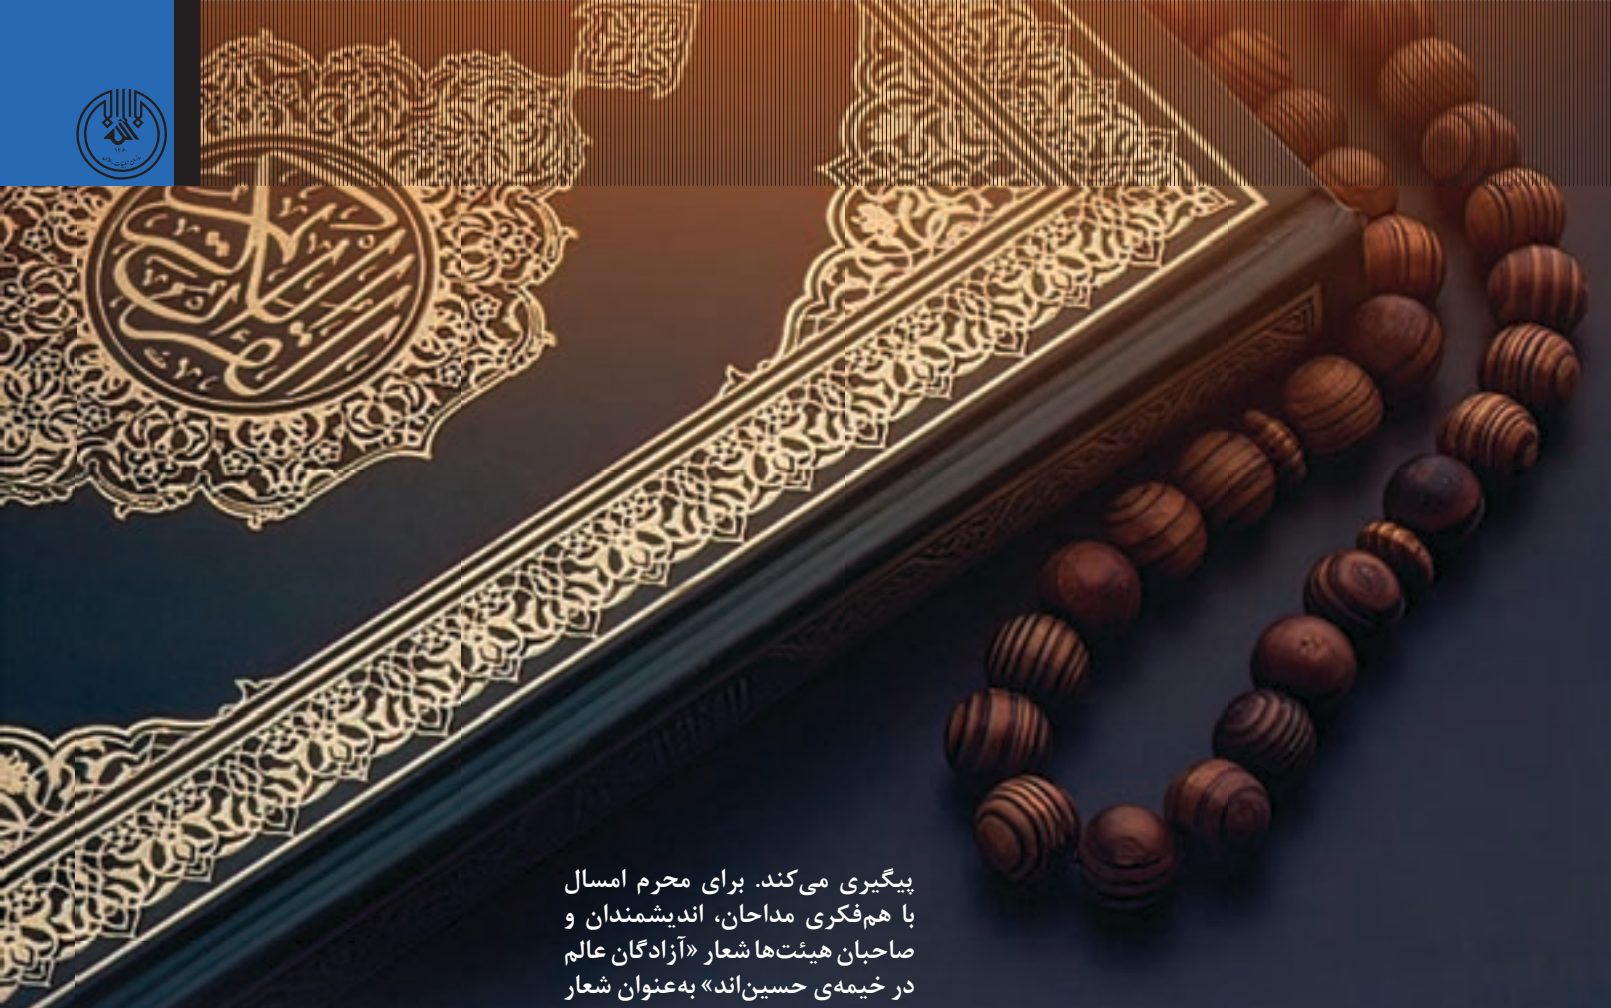 پیگیری می‌کند. برای محرم امسال
با هم‌فکری مداحان، اندیشمندان و
صاحبان هیئت‌ها شعار «آزادگان عالم
در خیمه‌ی حسین‌اند» به‌عنوان شعار